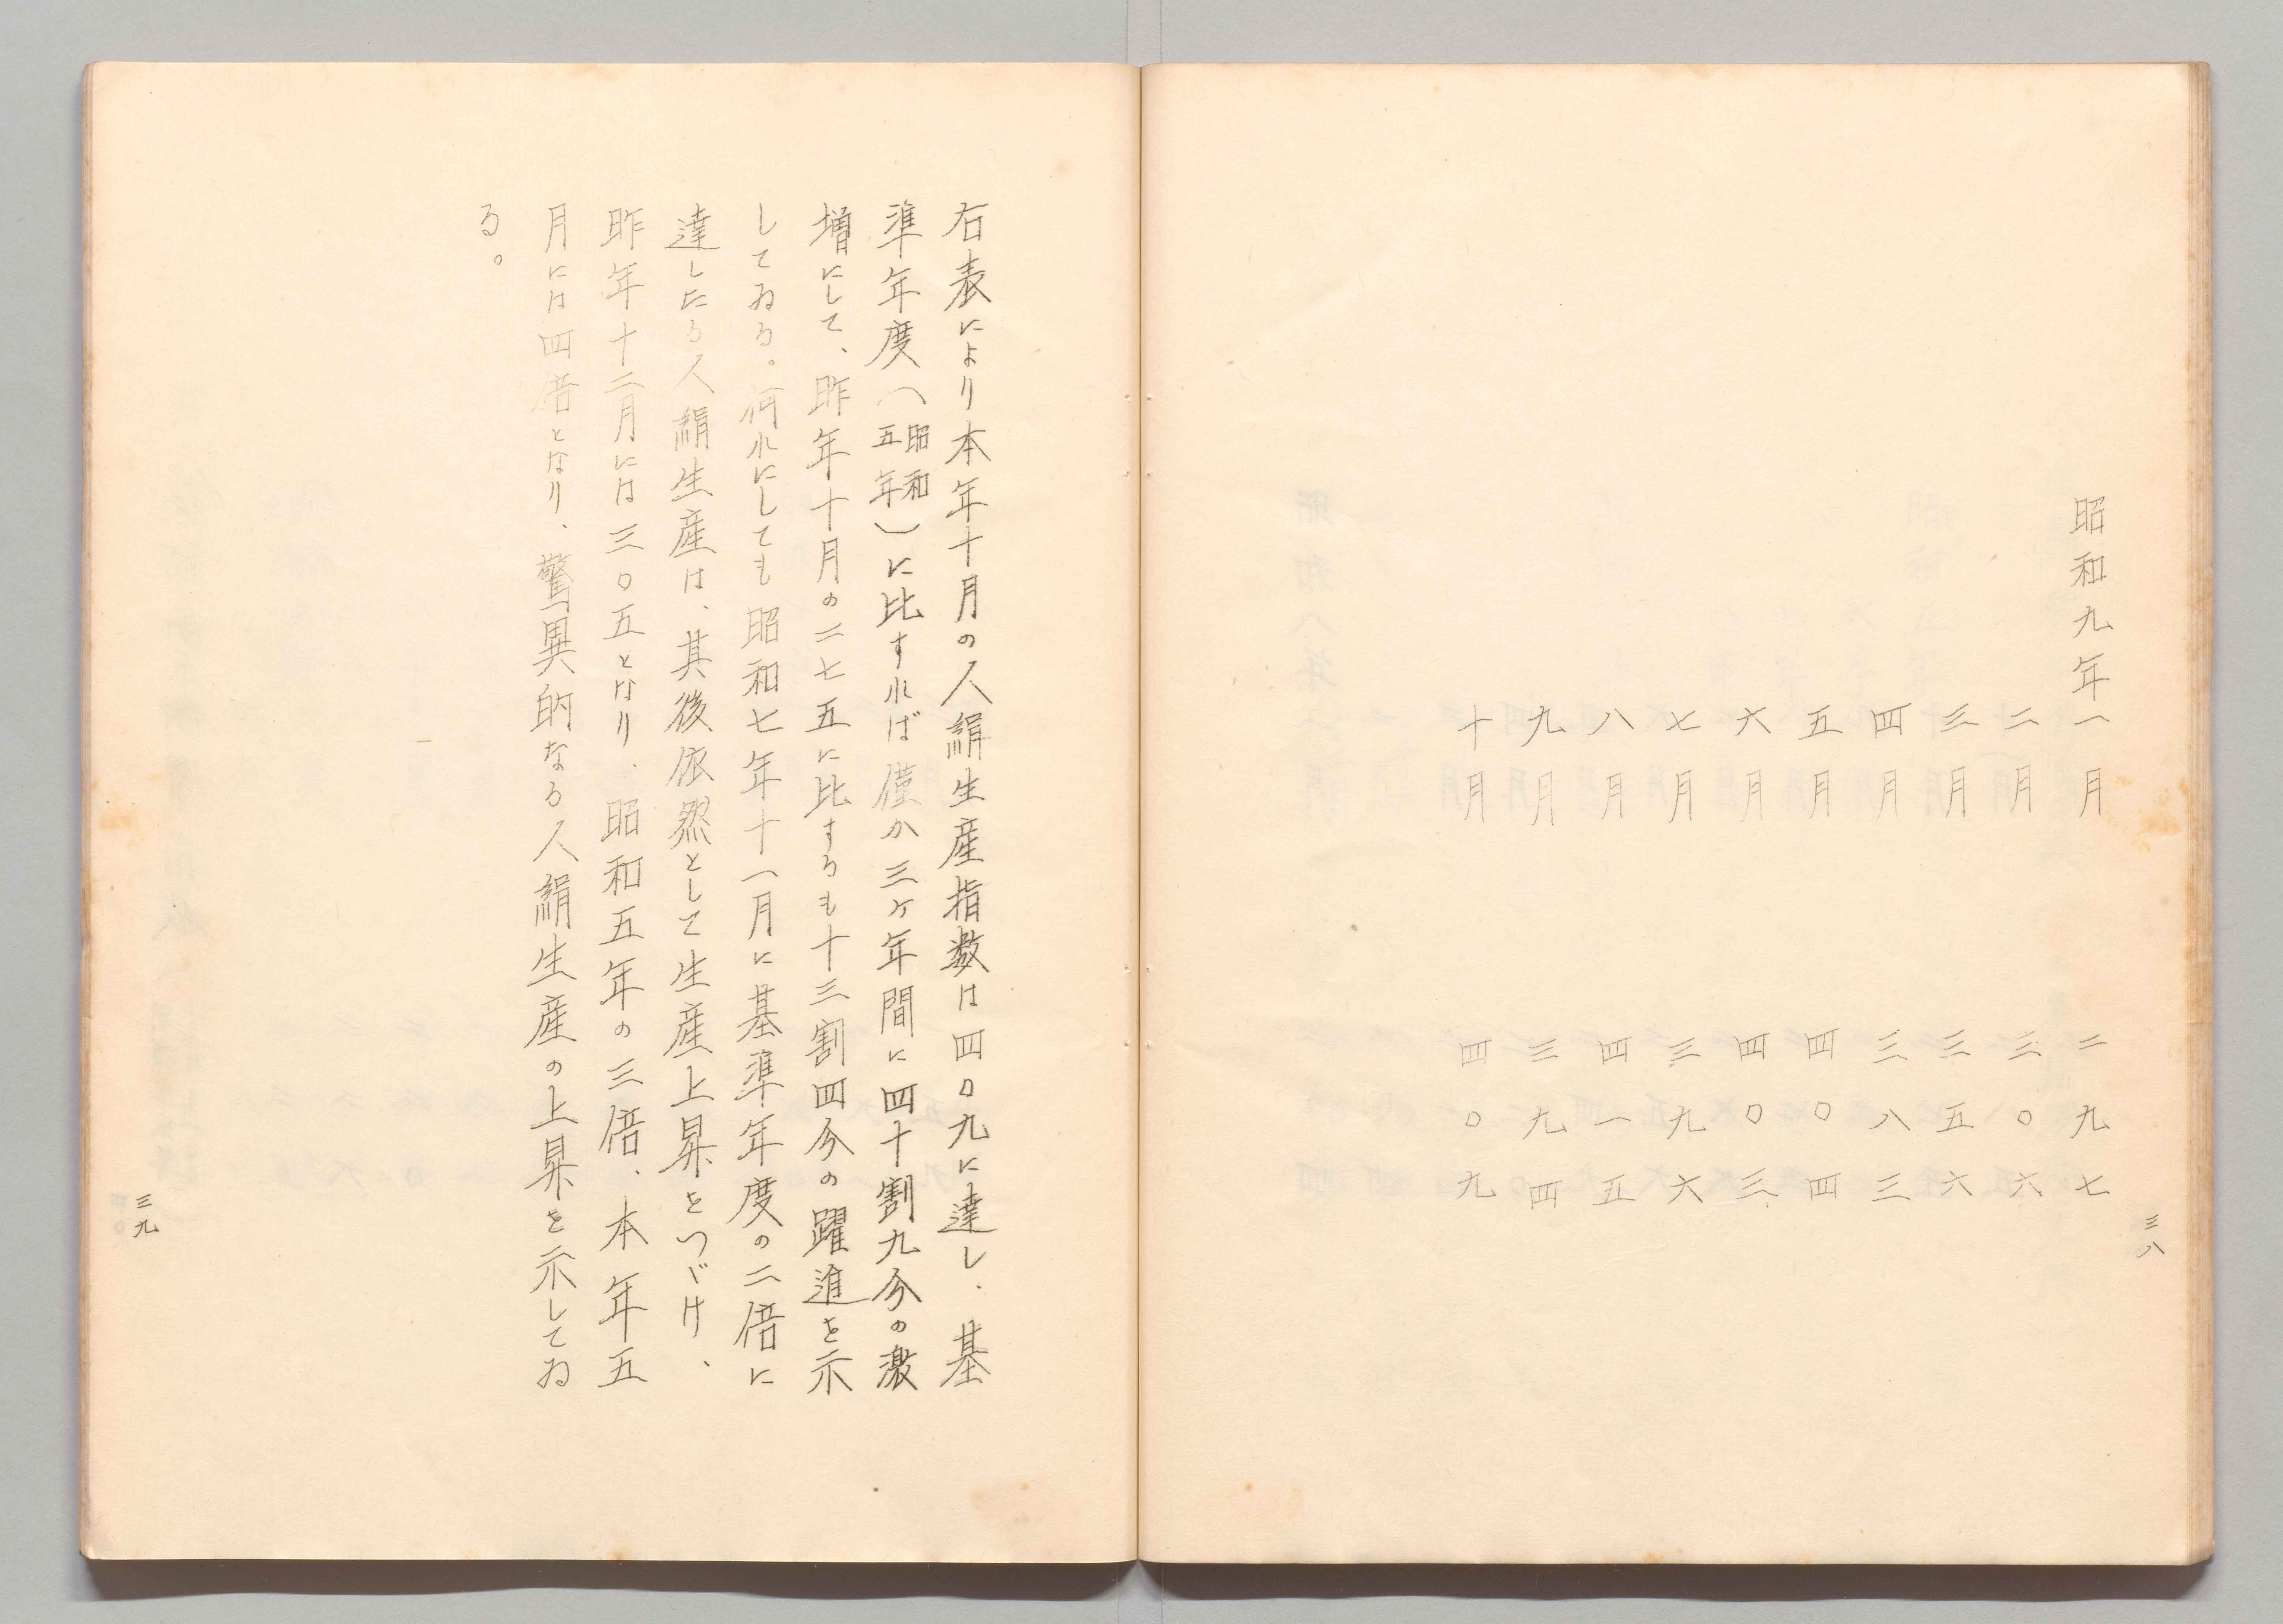 昭和九年一月　二九七
二月　三〇六
三月　三五六
四月　三八三
五月　四〇四
六月　四〇三
七月　三九六
八月　四一五
九月　三九四
十月　四〇九
三八
右表により本年十月の人絹生産指数は四〇九に達し、基
準年度（昭和五年）に比すれば僅か三ケ年間に四十割九分の激
増にして、昨年十月の二七五に比するも十三割四分の躍進を示
してゐる。何れにしても昭和七年十一月に基準年度の二倍に
達したる人絹生産は、其後依然として生産上昇をつゞけ、
昨年十二月には三〇五となり、昭和五年の三倍、本年五
月には四倍となり、驚異的なる人絹生産の上昇を示してゐ
る。
三九